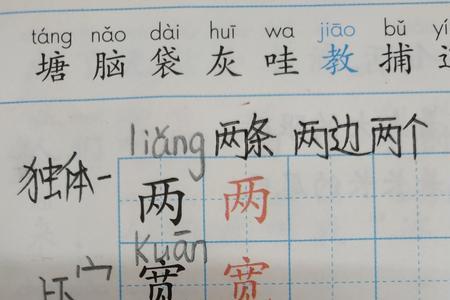 táng nǎo dài huī wa jiāo bǔ yí
塘 脑 袋 灰 哇 教 捕
liǎng 两条 两边 两个
独体一 两 两
kuān
宀 宽 宽